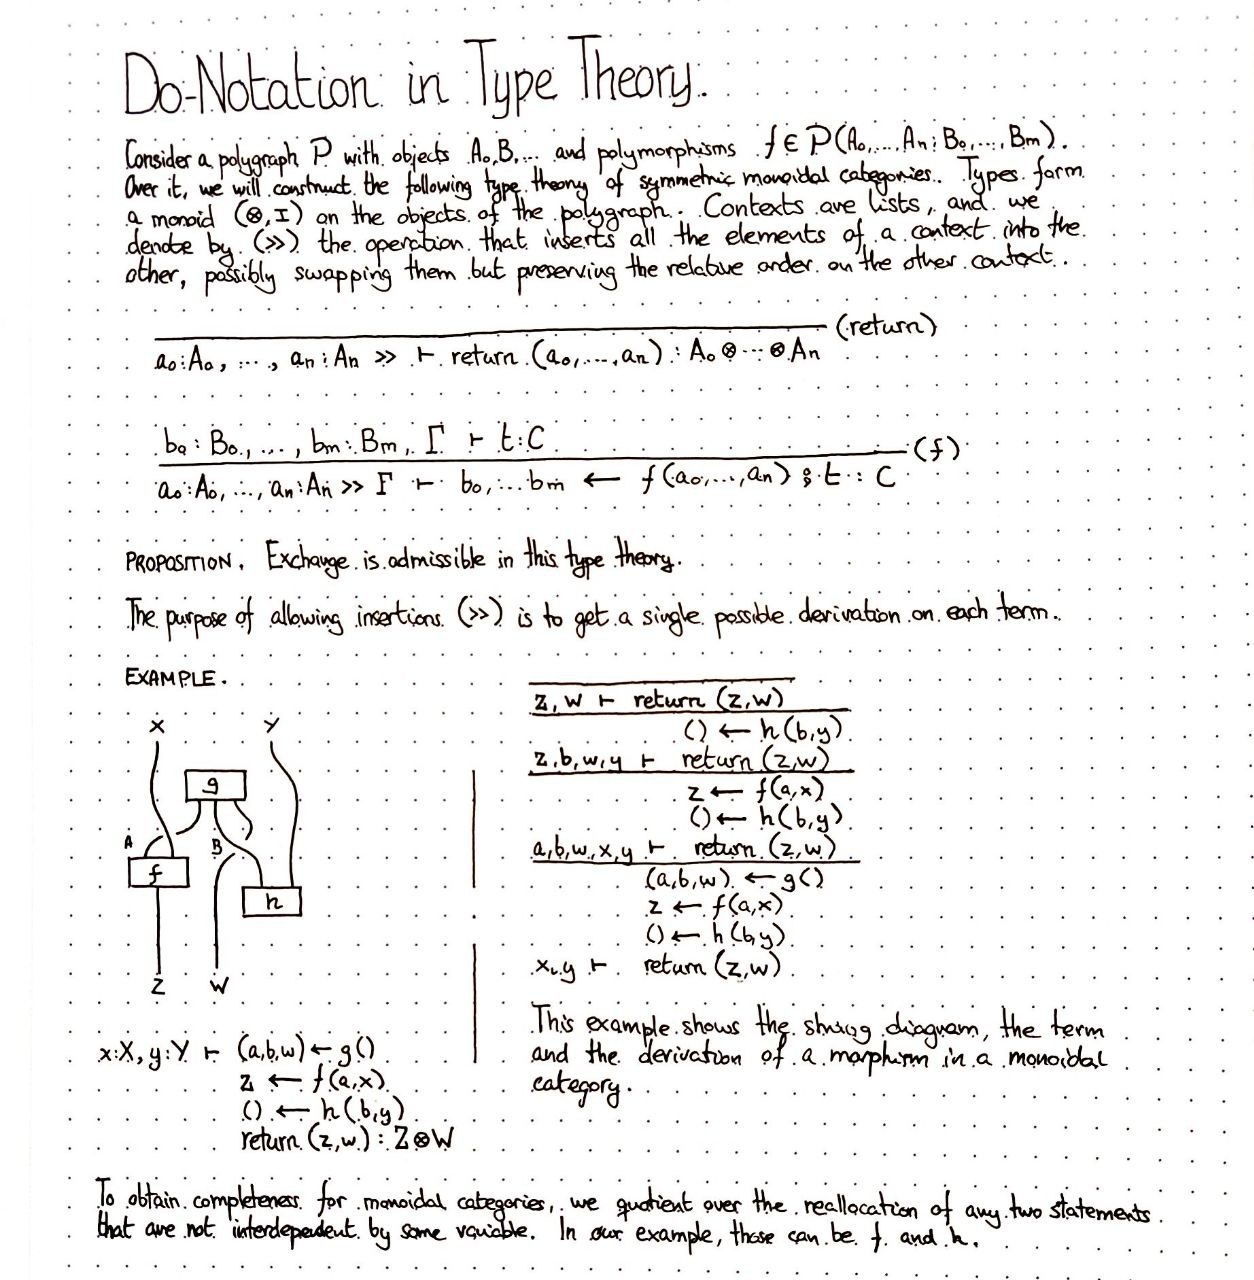 Do-Notation in Type Theory.
Consider a polygraph P with objects A₀,B,... and polymorphisms f ∈ P(A₀,...,An; B₀,...,Bm).
Over it, we will construct the following type theory of symmetric monoidal categories. Types form
a monoid (⊗,I) on the objects of the polygraph. Contexts are lists, and we
denote by (≫) the operation that inserts all the elements of a context into the
other, possibly swapping them but preserving the relative order on the other context.
(return)
a₀:A₀, ..., an:An ≫ ⊢ return (a₀,...,an) : A₀⊗...⊗An
b₀:B₀, ..., bm:Bm, Γ ⊢ t:C
(f)
a₀:A₀, ..., an:An ≫ Γ ⊢ b₀,...bm ← f(a₀,...,an) ⨾ t : C
PROPOSITION. Exchange is admissible in this type theory.
The purpose of allowing insertions (≫) is to get a single possible derivation on each term.
EXAMPLE.
X Y
g
A B
f
h
Z W
x:X, y:Y ⊢ (a,b,w) ← g()
z ← f(a,x)
() ← h(b,y)
return (z,w) : Z⊗W
z, w ⊢ return (z,w)
() ← h(b,y)
z,b,w,y ⊢ return (z,w)
z ← f(a,x)
() ← h(b,y)
a,b,w,x,y ⊢ return (z,w)
(a,b,w) ← g()
z ← f(a,x)
() ← h(b,y)
x,y ⊢ return (z,w)
This example shows the string diagram, the term
and the derivation of a morphism in a monoidal
category.
To obtain completeness for monoidal categories, we quotient over the reallocation of any two statements
that are not interdependent by some variable. In our example, those can be f and h.